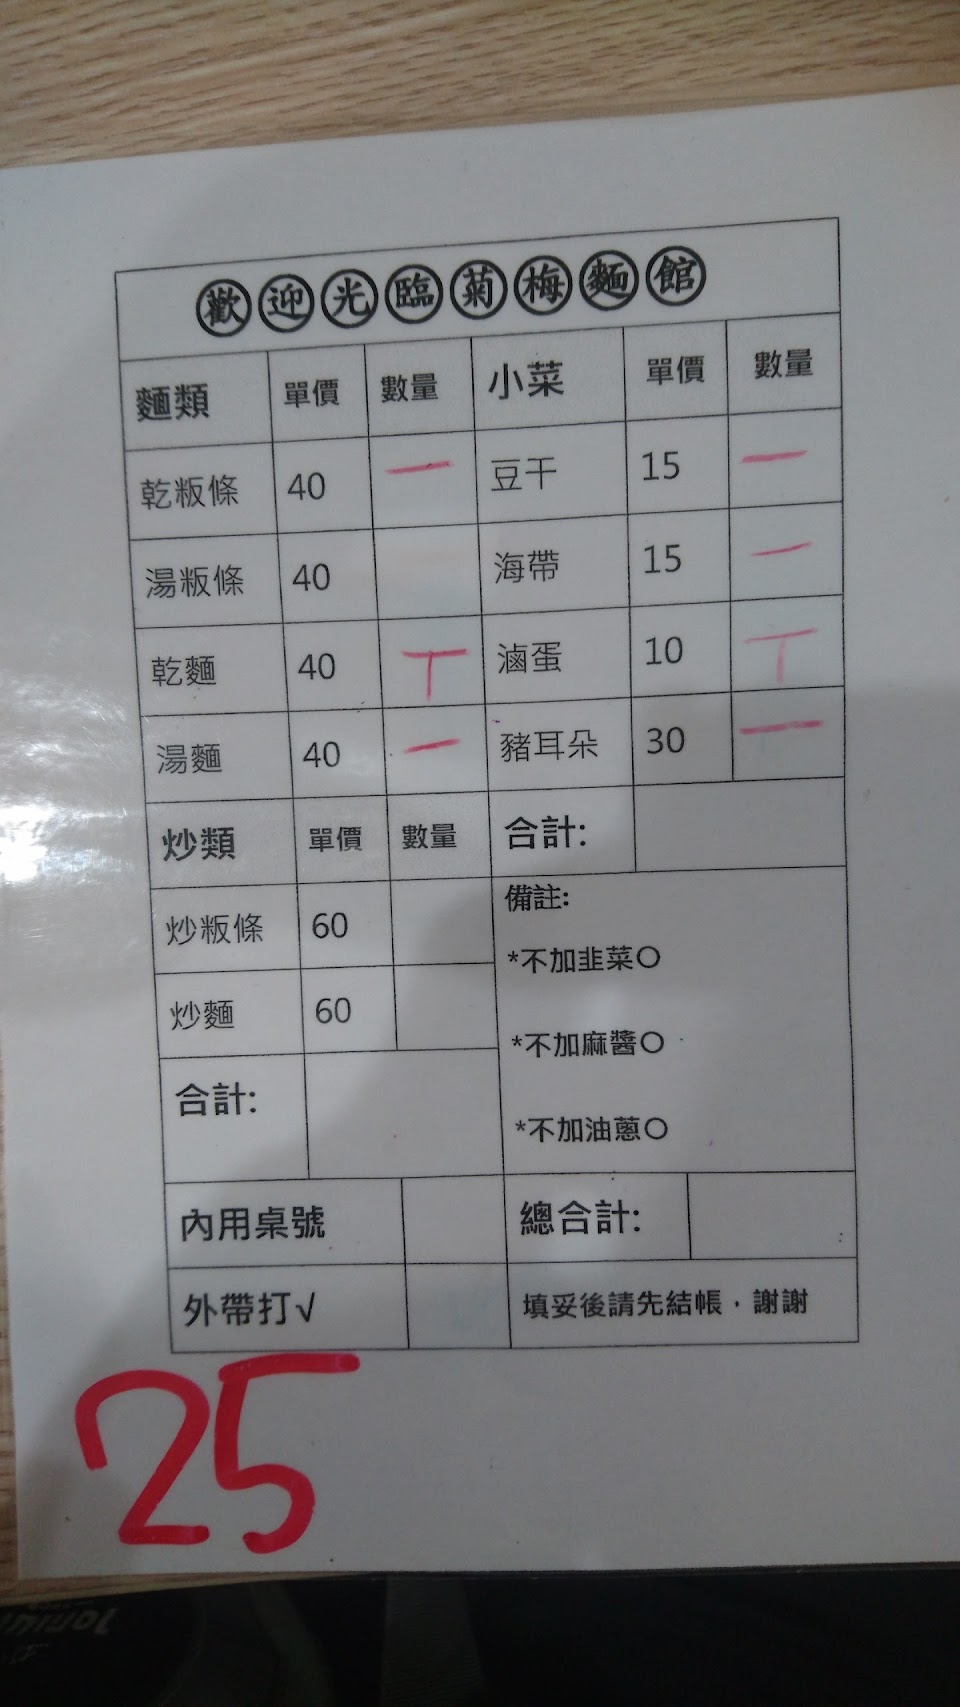 歡迎光臨菊梅麵館
麵類 單價 數量 小菜 單價 數量
乾粄條 40 一 豆干 15 一
湯粄條 40 海帶 15 一
乾麵 40 丅 滷蛋 10 丅
湯麵 40 一 豬耳朵 30 一
炒類 單價 數量 合計:
炒粄條 60 備註:
*不加韭菜○
炒麵 60 *不加麻醬○
合計: *不加油蔥○
內用桌號 總合計:
外帶打√ 填妥後請先結帳，謝謝
25